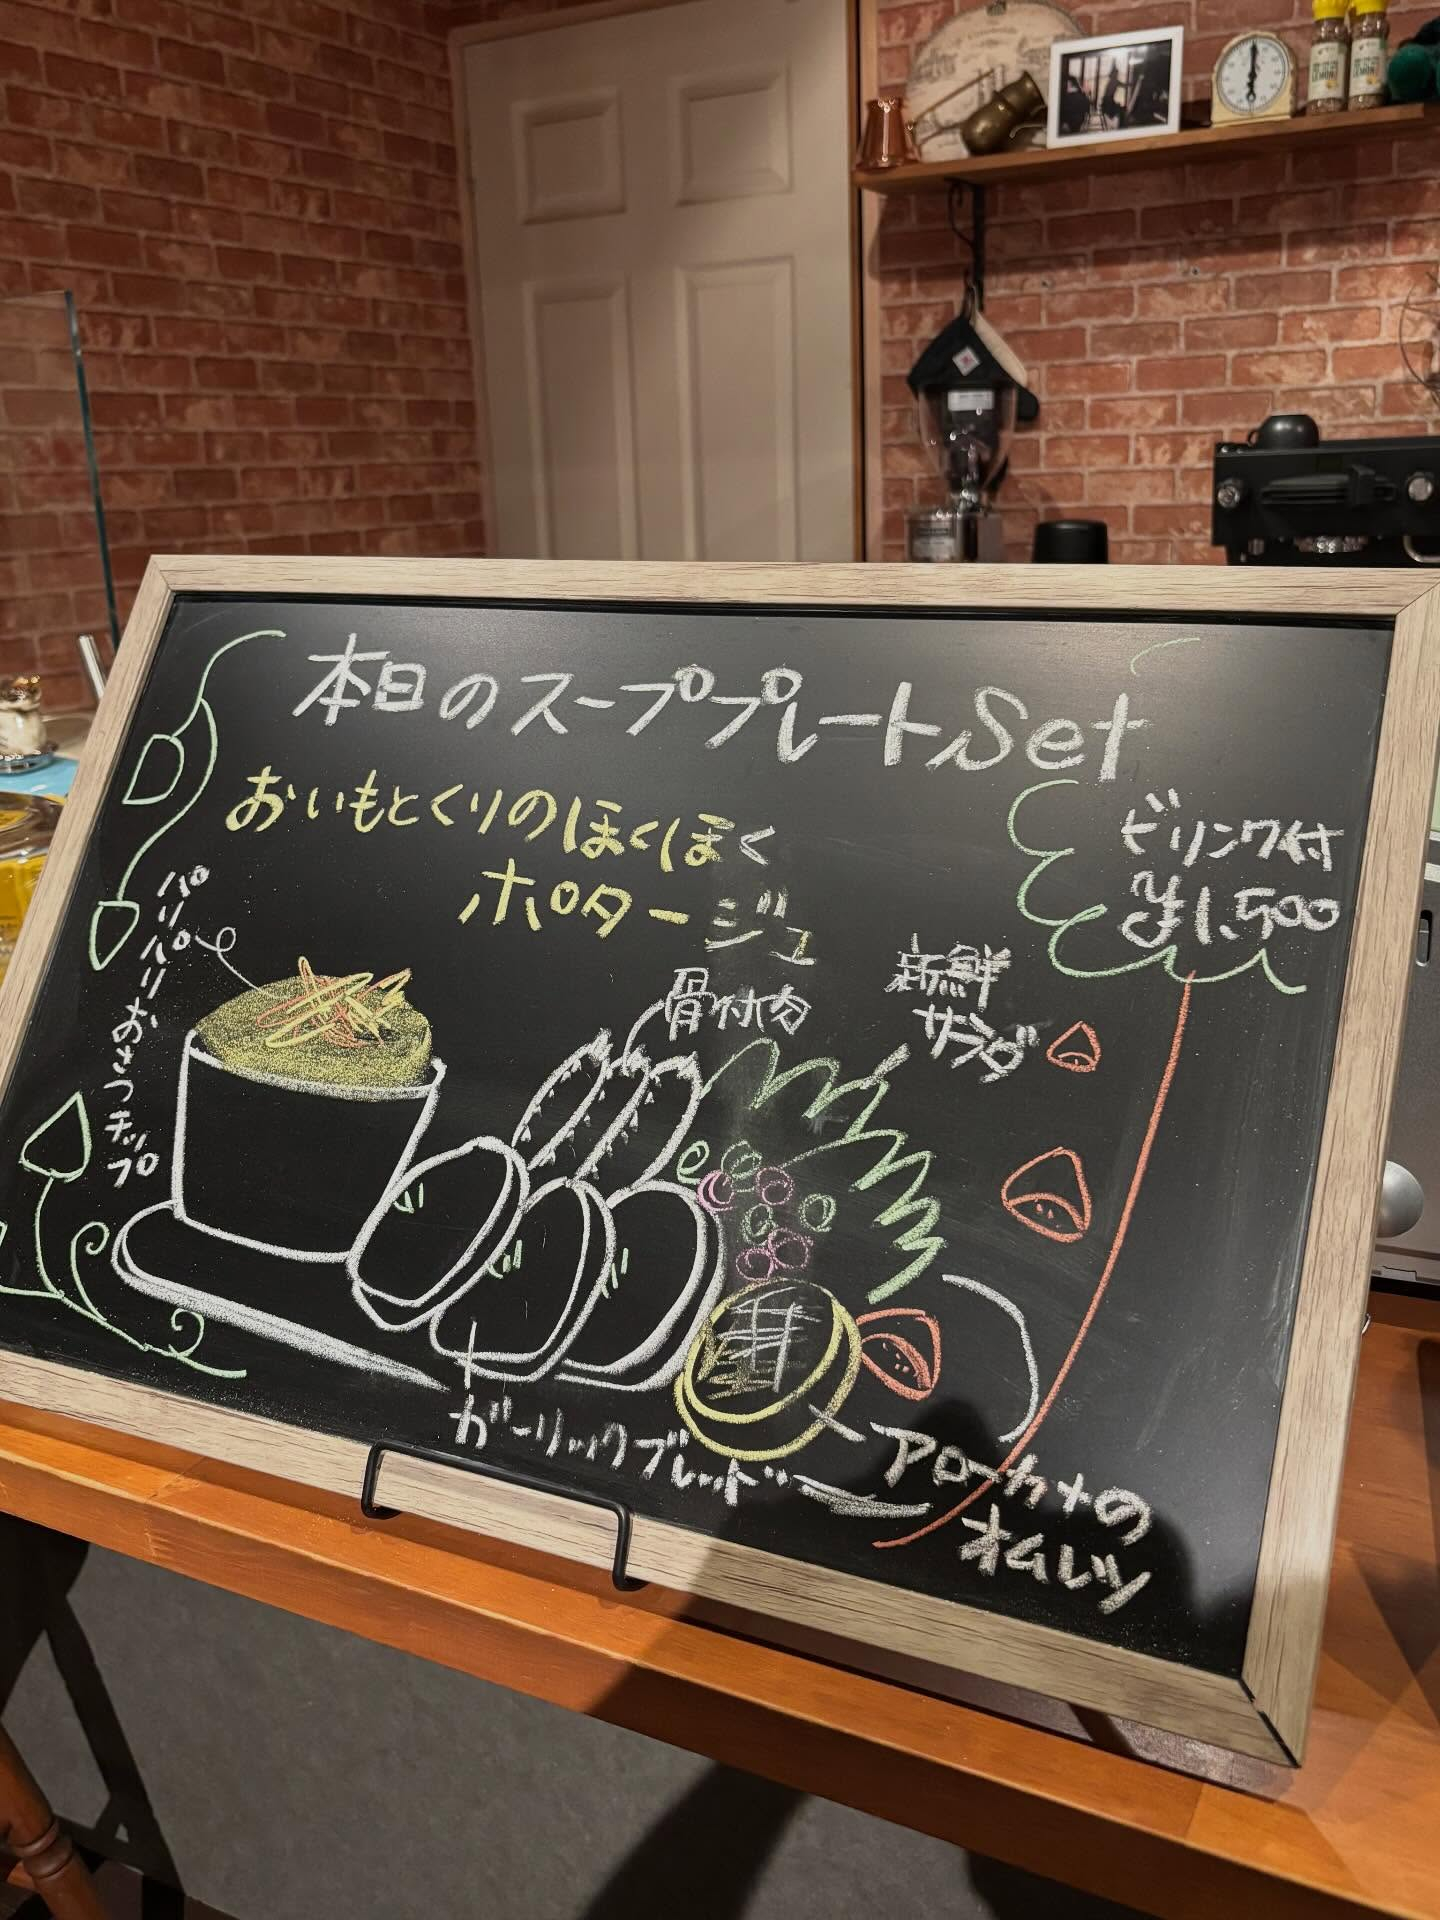 本日のスーププレートSet
おいもとくりのほくほく
ポタージュ
ドリンク付
¥1,500
パリパリおさつチップ
骨付肉
新鮮
サラダ
ガーリックブレッド
アボカドの
オムレツ